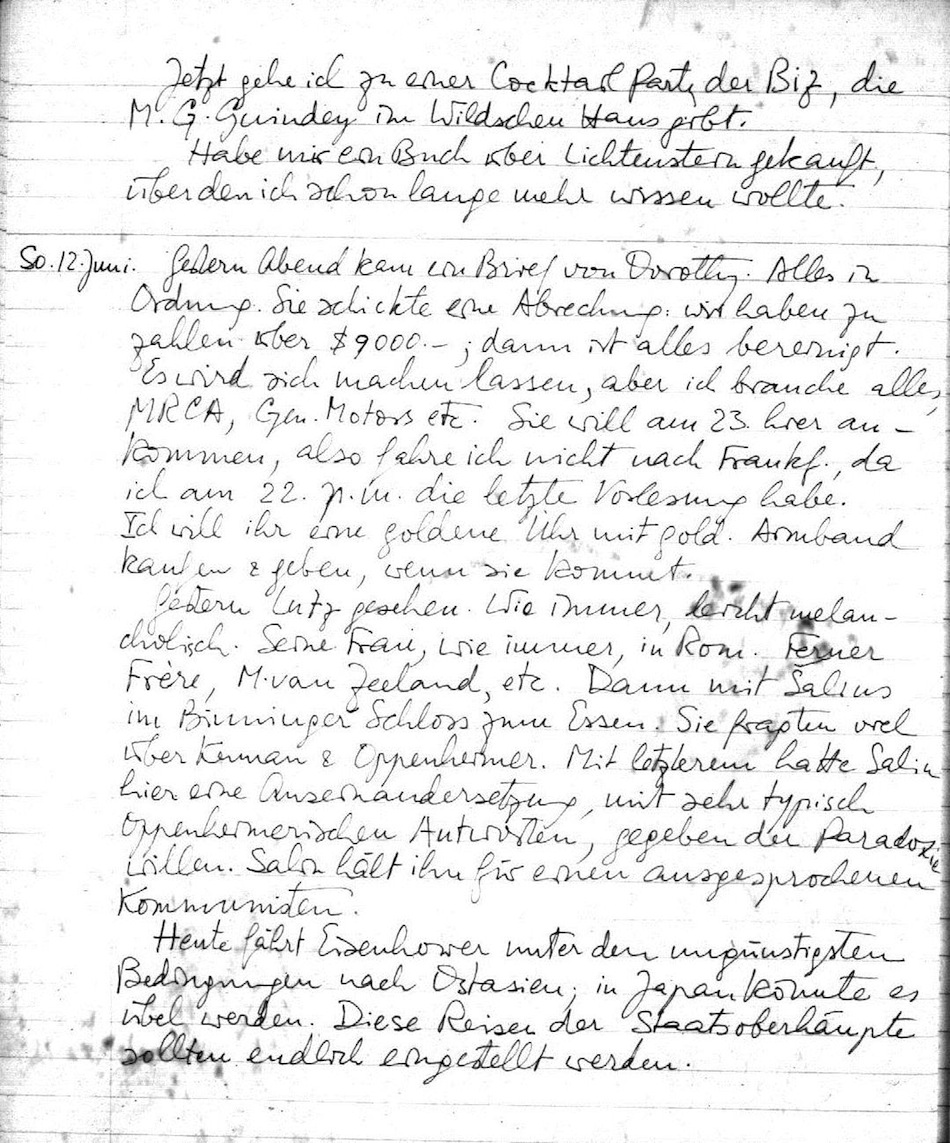 Jetzt gehe ich zu einer Cocktail Party der Biz, die
M. G. Guindey im Wildschen Haus gibt.
Habe mir ein Buch über Lichtenstern gekauft,
über den ich schon lange mehr wissen wollte.
So. 12. Juni. Gestern Abend kam ein Brief von Dorothy. Alles in
Ordnung. Sie schickte eine Abrechnung: wir haben zu
zahlen über $9000.–; dann ist alles bereinigt.
Es wird sich machen lassen, aber ich brauche alles,
MRCA, Gen. Motors etc. Sie will am 23. hier an-
kommen, also fahre ich nicht nach Frankf., da
ich am 22. p.m. die letzte Vorlesung habe.
Ich will ihr eine goldene Uhr mit gold. Armband
kaufen & geben, wenn sie kommt.
Gestern Lutz gesehen. Wie immer, leicht melan-
cholisch. Seine Frau, wie immer, in Rom. Ferner
Frère, M. van Zeeland, etc. Dann mit Salins
im Binninger Schloss zum Essen. Sie fragten viel
über Kennan & Oppenheimer. Mit letzterem hatte Salin
hier eine Auseinandersetzung, mit sehr typisch
Oppenheimerischen Antworten, gegeben der Paradoxie
willen. Salin hält ihn für einen ausgesprochenen
Kommunisten.
Heute fährt Eisenhower unter den ungünstigsten
Bedingungen nach Ostasien; in Japan könnte es
übel werden. Diese Reisen der Staatsoberhäupte
sollten endlich eingestellt werden.